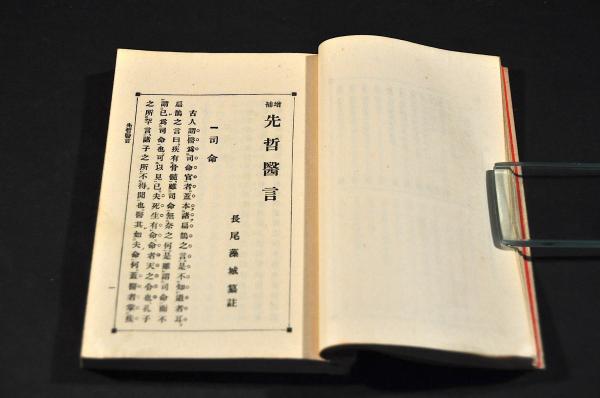 增補
先哲醫言
長尾藻城纂註
一司命
古人謂醫爲司命官者、蓋本諸扁鵲之言、是不知道者耳、
扁鵲之言曰、疾有骨髓、雖司命無奈之何、是雖謂司命、而不
謂已爲司命也、可以見已、夫死生有命、命者天之令也、孔子
之所罕言、諸子之所不得聞也、醫其如夫命何、蓋醫者掌疾
先哲醫言
一